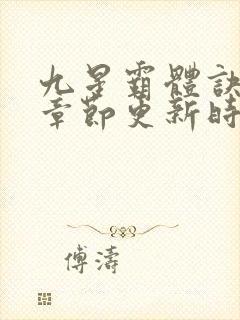 九星霸體訣
章節更新時
傅濤